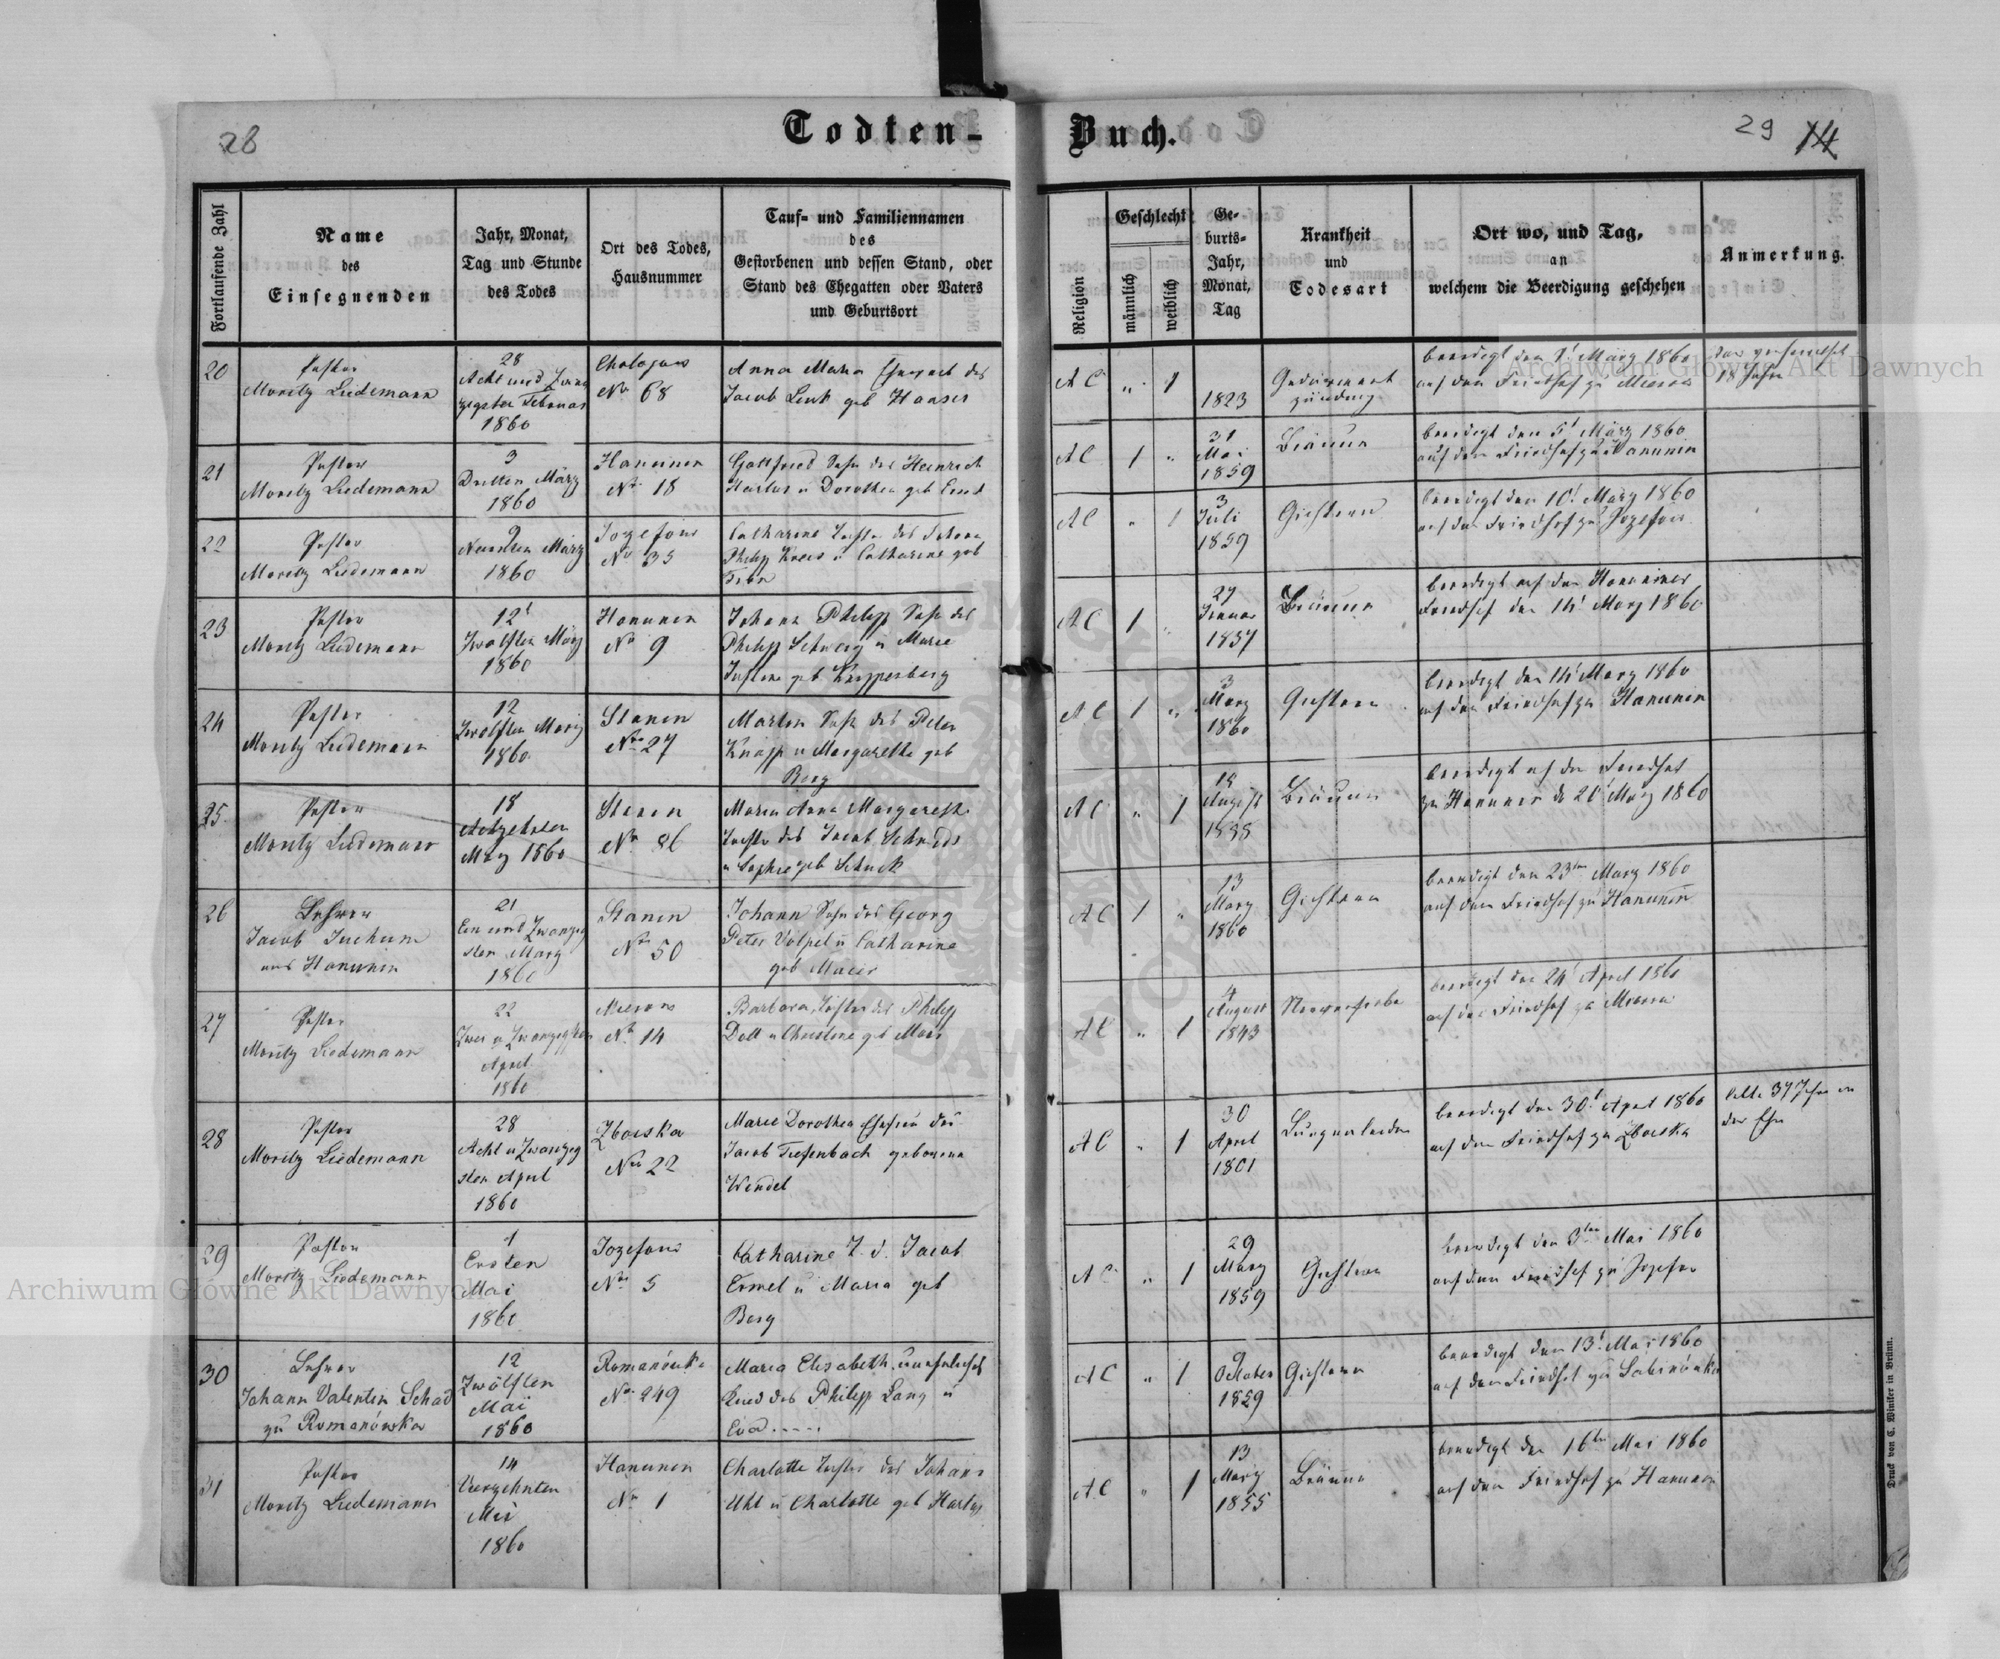 28
Todten-
Buch.
29 14
Fortlaufende Zahl
Name
des
Einsegnenden
Jahr, Monat,
Tag und Stunde
des Todes
Ort des Todes,
Hausnummer
Tauf- und Familiennamen
des
Gestorbenen und dessen Stand, oder
Stand des Ehegatten oder Vaters
und Geburtsort
Religion
Geschlecht
männlich
weiblich
Ge-
burts-
Jahr,
Monat,
Tag
Krankheit
und
Todesart
Ort wo, und Tag,
an
welchem die Beerdigung geschehen
Anmerkung.
20
Pastor
Moritz Liedemann
28
Acht und Zwan
zigsten Februar
1860
No 68
Anna Maria Ehegatt des
Jacob Link geb Hauser
AC " 1
1823
Gedärment
zündung
beerdigt den 1t März 1860
auf dem Friedhof zu
18 Jahre
21
Pastor
Moritz Liedemann
3
Dritten März
1860
Hanunin
No 18
Gottfried Sohn des Heinrich
Harlos u Dorothea geb
AC 1 "
31
Mai
1859
Bräune
beerdigt den 5t März 1860
auf dem Friedhof zu Hanunin
22
Pastor
Moritz Liedemann
9
Neunten März
1860
Jozefow
No 35
Catharine Tochter des Johann
Philipp Kreis u Catharine geb
AC " 1
3
Juli
1859
Gichtern
beerdigt den 10t März 1860
auf dem Friedhof zu Jozefow
23
Pastor
Moritz Liedemann
12t
Zwölften März
1860
Hanunin
No 9
Johann Philipp Sohn des
Philipp Schweig u Marie
Justine geb Knipperberg
AC 1 "
27
Januar
1857
Bräune
beerdigt auf dem Hanuniner
Friedhof den 14t März 1860
24
Pastor
Moritz Liedemann
12
Zwölften März
1860
Stanin
No 27
Martin Sohn des Peter
Knapp u Margarethe geb
Berg
AC 1 "
3
März
1860
Gichtern
beerdigt den 14t März 1860
auf dem Friedhof zu Hanunin
25
Pastor
Moritz Liedemann
18
Achzehnten
März 1860
Stanin
No 86
Maria Anna Margarethe
Tochter des Jacob Schmidt
u Sophie geb Schuck
AC " 1
18
August
Bräune
beerdigt auf dem Friedhof
zu Hanunin d 20t März 1860
26
Lehrer
Jacob Juchum
aus Hanunin
21
Ein und Zwanzig
sten März
1860
Stanin
No 50
Johann Sohn des Georg
Peter Völpel u Catharine
geb Maier
AC 1 "
13
März
1860
Gichtern
beerdigt den 23ten März 1860
auf dem Friedhof zu Hanunin
27
Pastor
Moritz Liedemann
22
Zwei u Zwanzigsten
April
1860
No 14
Barbara Tochter des Philipp
Doll u Christine geb Mais
AC " 1
4
August
1843
Nervenfieber
beerdigt den 24t April 1860
auf dem Friedhof zu
28
Pastor
Moritz Liedemann
28
Acht u Zwanzig
sten April
1860
Zboiska
No 22
Marie Dorothea Ehefrau des
Jacob Tiefenbach geborene
Wendel
AC " 1
30
April
1801
Lungenleiden
beerdigt den 30t April 1860
auf dem Friedhof zu Zboiska
lebte 37 Jahre in
der Ehe
29
Pastor
Moritz Liedemann
1
Ersten
Mai
1860
Jozefow
No 5
Catharine T. d. Jacob
Ermel u Maria geb
Berg
AC " 1
29
März
1859
Gichtern
beerdigt den 3ten Mai 1860
auf dem Friedhof zu Jozefow
30
Lehrer
Johann Valentin Schad
zu Romanówka
12
Zwölften
Mai
1860
Romanówka
No 249
Maria Elisabeth, unehelich
Kind des Philipp Lang u
Eva .....
AC " 1
9
October
1859
Gichtern
beerdigt den 13t Mai 1860
auf dem Friedhof zu Sabinówka
31
Pastor
Moritz Liedemann
14
Vierzehnten
Mai
1860
Hanunin
No 1
Charlotte Tochter des Johann
Uhl u Charlotte geb Harlos
AC " 1
13
März
1855
Bräune
beerdigt den 16ten Mai 1860
auf dem Friedhof zu Hanunin
Druck von C. Winiker in Brünn.
Archiwum Główne Akt Dawnych
Archiwum Główne Akt Dawnych